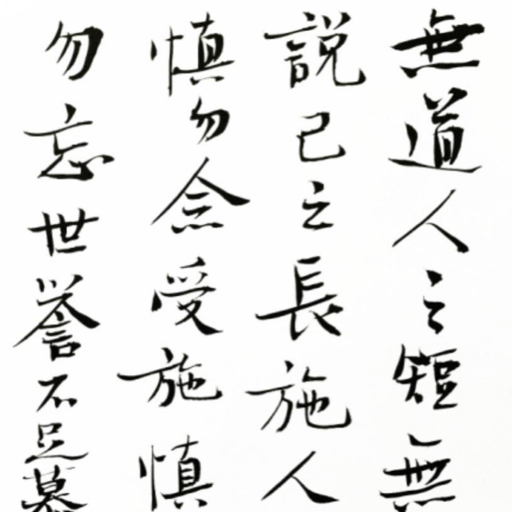 無道人之短無
說己之長施人
慎勿念受施慎
勿忘世譽不足慕